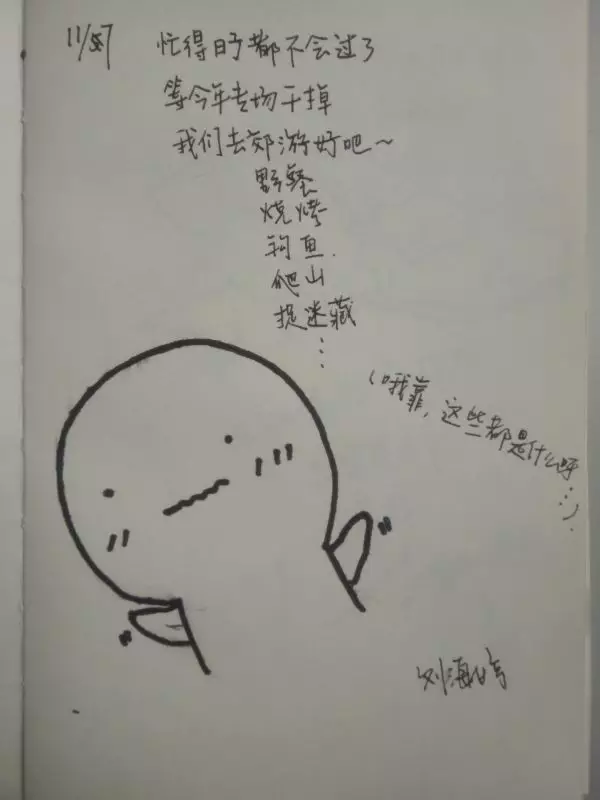 11/7
忙得日子都不会过了
等今年专场干掉
我们去郊游好吧~
野餐
烧烤
钓鱼.
爬山
捉迷藏
⋮
(哦靠,这些都是什么呀……)
刘海